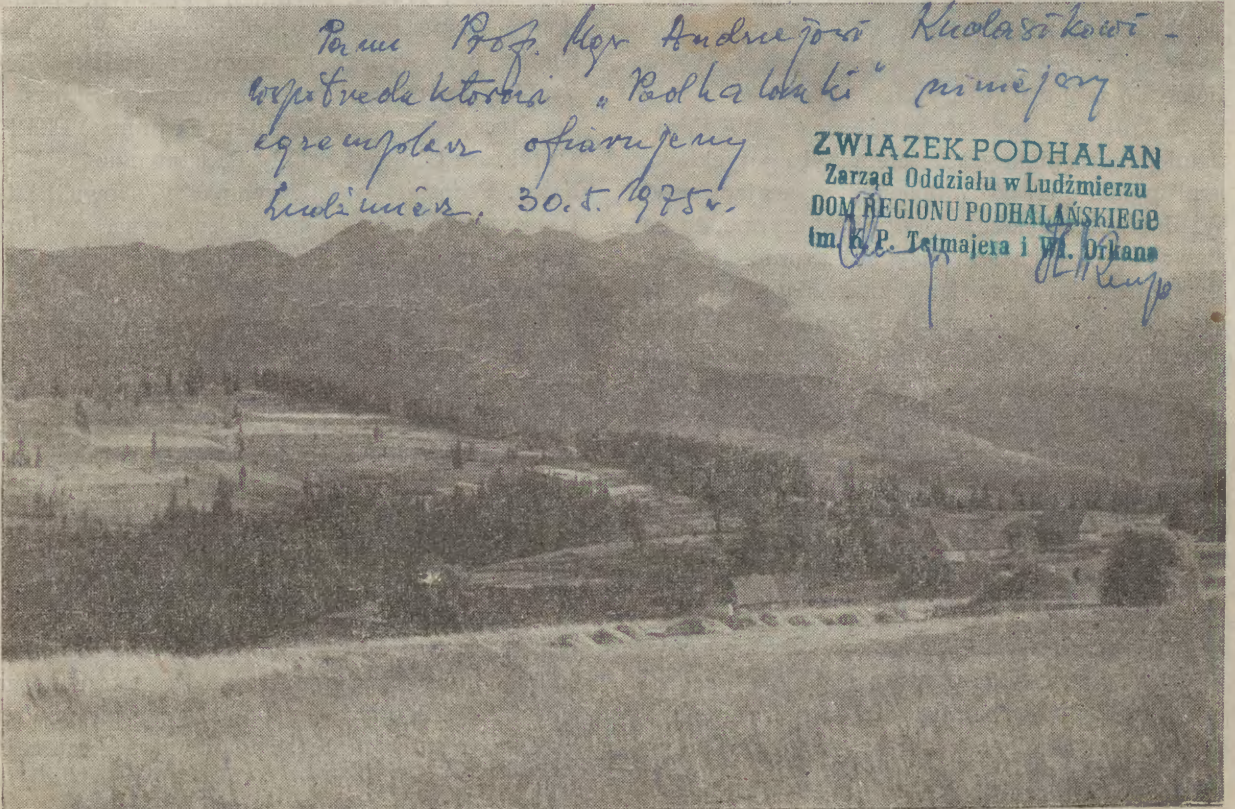 Panu Prof. Mgr Andrzejowi Kudasikowi -
współredaktorowi „Podhalanki" niniejszy
egzemplarz ofiarujemy
Ludźmierz, 30.5. 1975 r.
ZWIĄZEK PODHALAN
Zarząd Oddziału w Ludźmierzu
DOM REGIONU PODHALAŃSKIEGO
im. K. P. Tetmajera i Wł. Orkana